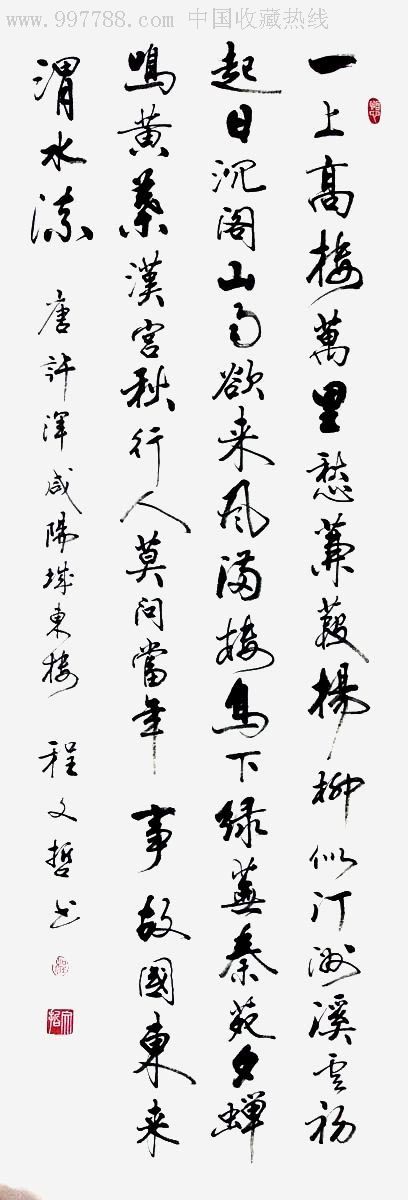 www.997788.com 中国收藏热线
一上高楼萬里愁蒹葭楊柳似汀洲溪雲初
起日沉阁山雨欲来风满楼鸟下绿蕪秦苑夕蝉
鸣黄葉漢宫秋行人莫问當年事故國東来
渭水流
唐許渾咸陽城東楼 程文哲书